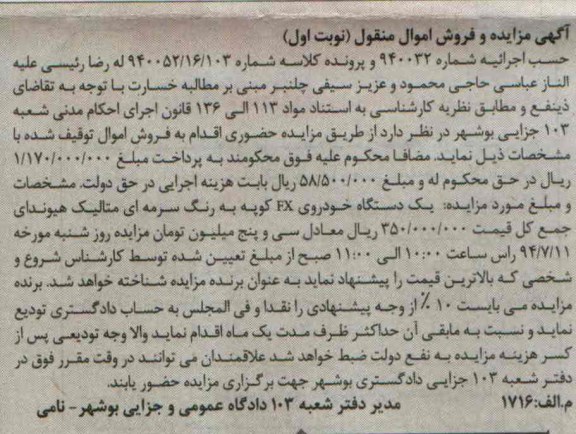 آگهی مزایده و فروش اموال منقول (نوبت اول)
حسب اجرائیه شماره ۹۴۰۰۳۲ و پرونده کلاسه شماره ۹۴۰۰۵۲/۱۶/۱۰۳ له رضا رئیسی علیه
الناز عباسی حاجی محمود و عزیز سیفی چلنبر مبنی بر مطالبه خسارت با توجه به تقاضای
ذینفع و مطابق نظریه کارشناسی به استناد مواد ۱۱۳ الی ۱۳۶ قانون اجرای احکام مدنی شعبه
۱۰۳ جزایی بوشهر در نظر دارد از طریق مزایده حضوری اقدام به فروش اموال توقیف شده با
مشخصات ذیل نماید. مضافا محکوم علیه فوق محکومند به پرداخت مبلغ ۱/۱۷۰/۰۰۰/۰۰۰
ریال در حق محکوم له و مبلغ ۵۸/۵۰۰/۰۰۰ ریال بابت هزینه اجرایی در حق دولت. مشخصات
و مبلغ مورد مزایده: یک دستگاه خودروی FX کوپه به رنگ سرمه ای متالیک هیوندای
جمع کل قیمت ۳۵۰/۰۰۰/۰۰۰ ریال معادل سی و پنج میلیون تومان مزایده روز شنبه مورخه
۹۴/۷/۱۱ راس ساعت ۱۰:۰۰ الی ۱۱:۰۰ صبح از مبلغ تعیین شده توسط کارشناس شروع و
شخصی که بالاترین قیمت را پیشنهاد نماید به عنوان برنده مزایده شناخته خواهد شد. برنده
مزایده می بایست ۱۰٪ از وجه پیشنهادی را نقدا و فی المجلس به حساب دادگستری تودیع
نماید و نسبت به مابقی آن حداکثر ظرف مدت یک ماه اقدام نماید والا وجه تودیعی پس از
کسر هزینه مزایده به نفع دولت ضبط خواهد شد علاقمندان می توانند در وقت مقرر فوق در
دفتر شعبه ۱۰۳ جزایی دادگستری بوشهر جهت برگزاری مزایده حضور یابند.
م.الف:۱۷۱۶ مدیر دفتر شعبه ۱۰۳ دادگاه عمومی و جزایی بوشهر- نامی